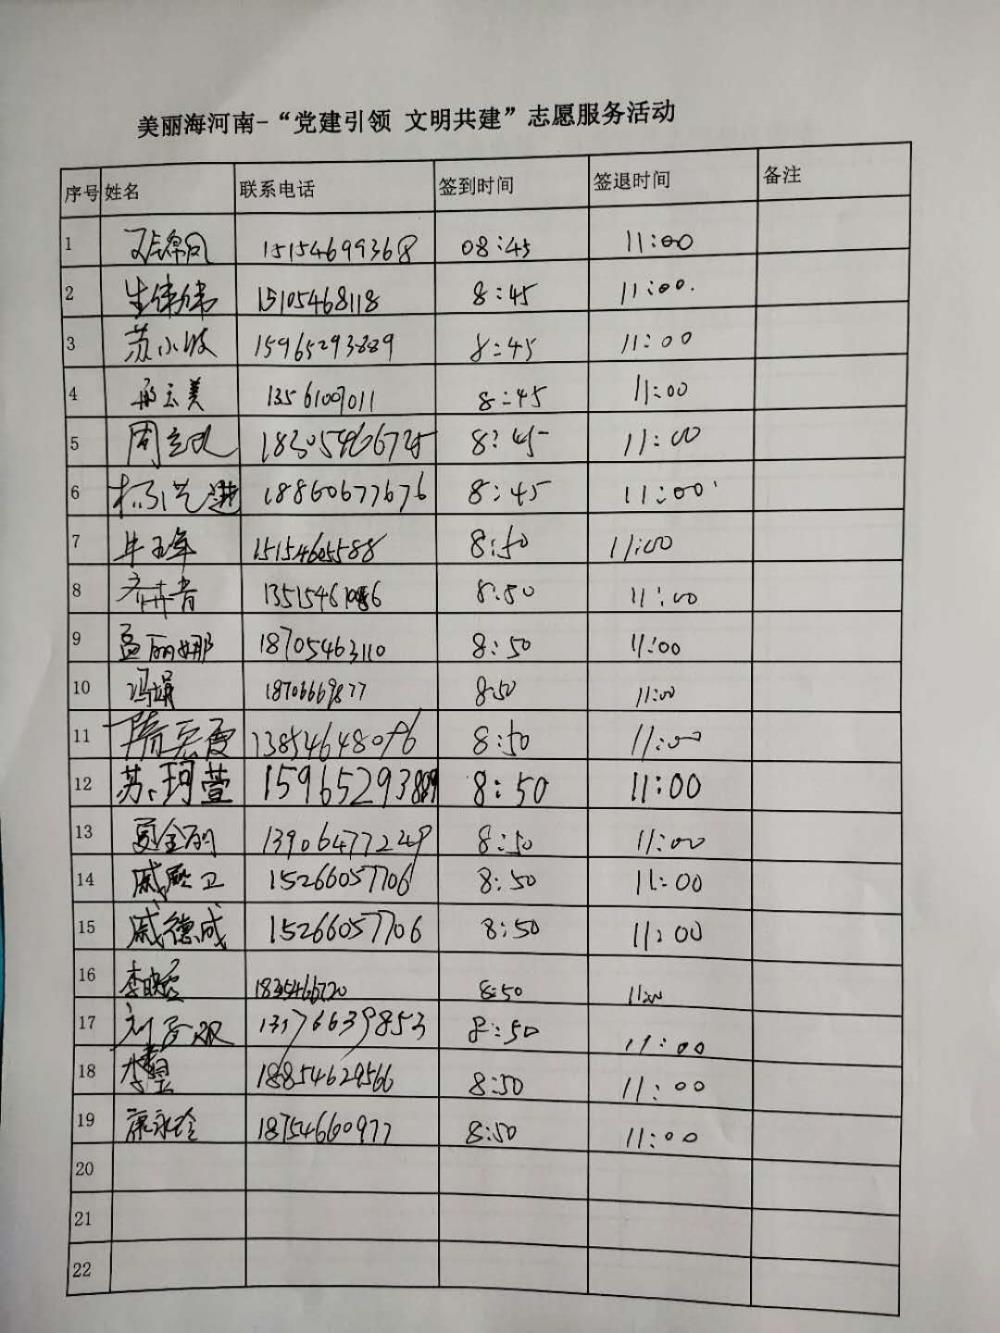 美丽海河南-“党建引领 文明共建”志愿服务活动
序号 姓名 联系电话 签到时间 签退时间 备注
1 15154699368 08:45 11:00
2 生伟伟 15105468118 8:45 11:00
3 苏小波 15965293889 8:45 11:00
4 云美 13561009011 8:45 11:00
5 周立 8:45 11:00
6 杨兰进 18860677676 8:45 11:00
7 牛玉军 15154605588 8:50 11:00
8 8:50 11:00
9 孟丽娜 18705463110 8:50 11:00
10 冯娟 18706669877 8:50 11:00
11 隋宏霞 13854648096 8:50 11:00
12 苏珂萱 15965293889 8:50 11:00
13 13906477229 8:50 11:00
14 戚殿卫 15266057706 8:50 11:00
15 戚德成 15266057706 8:50 11:00
16 李 8:50 11:00
17 刘 13176639853 8:50 11:00
18 18854629566 8:50 11:00
19 康永玲 18754660977 8:50 11:00
20
21
22